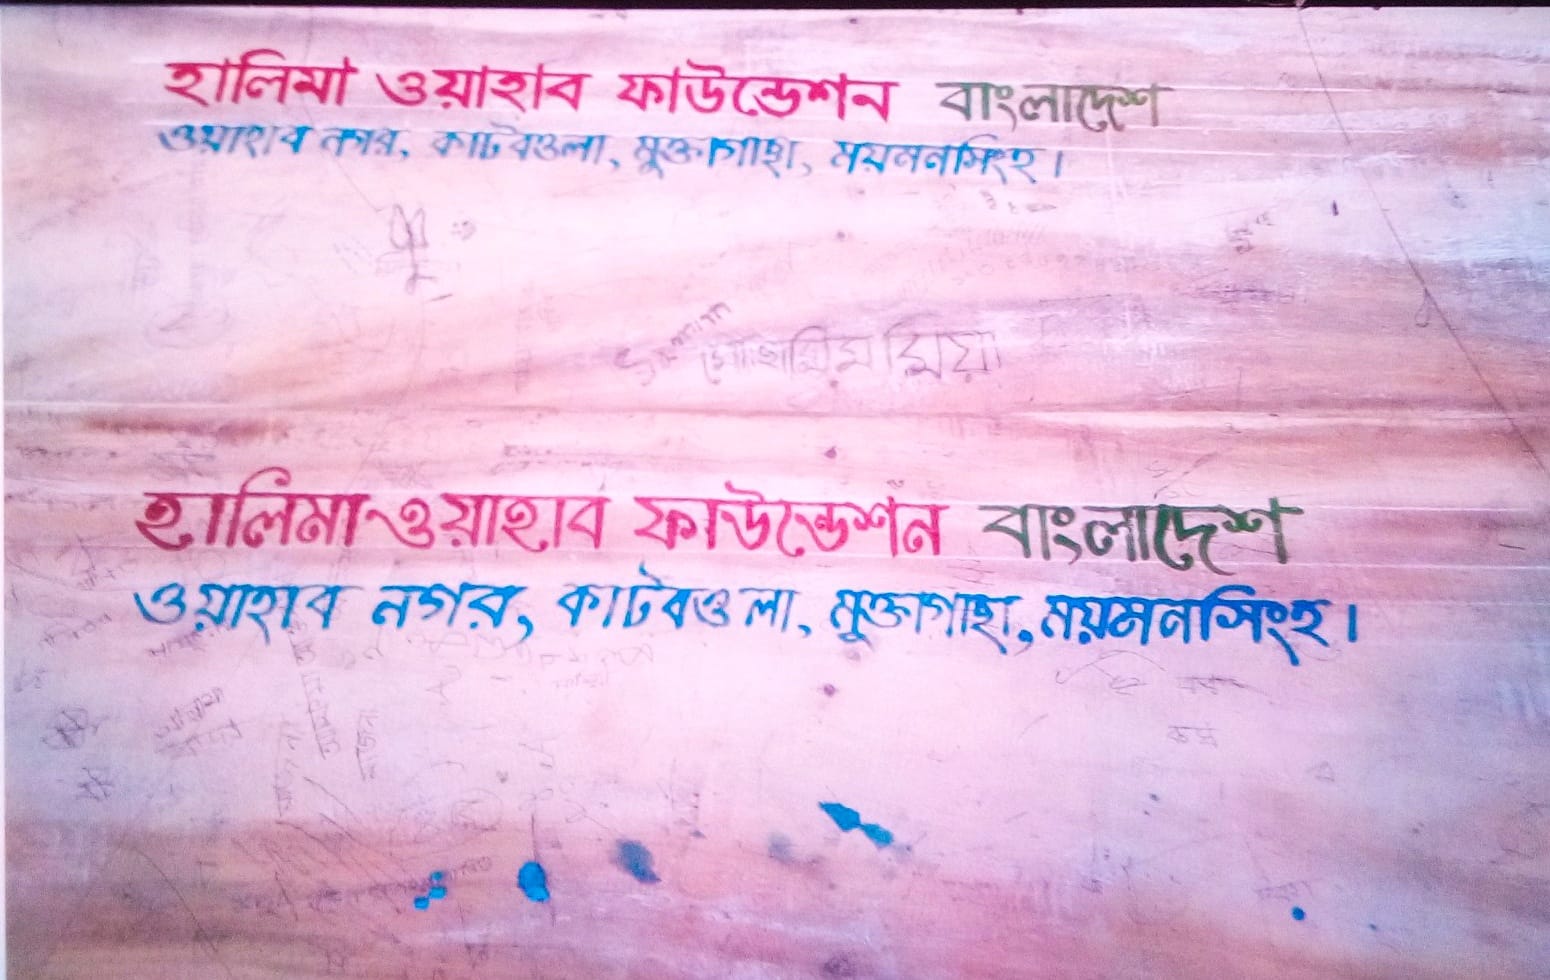 হালিমা ওয়াহাব ফাউন্ডেশন বাংলাদেশ
ওয়াহাব নগর, কাটবওলা, মুক্তাগাছা, ময়মনসিংহ।
মিয়া
হালিমা ওয়াহাব ফাউন্ডেশন বাংলাদেশ
ওয়াহাব নগর, কাটবওলা, মুক্তাগাছা, ময়মনসিংহ।